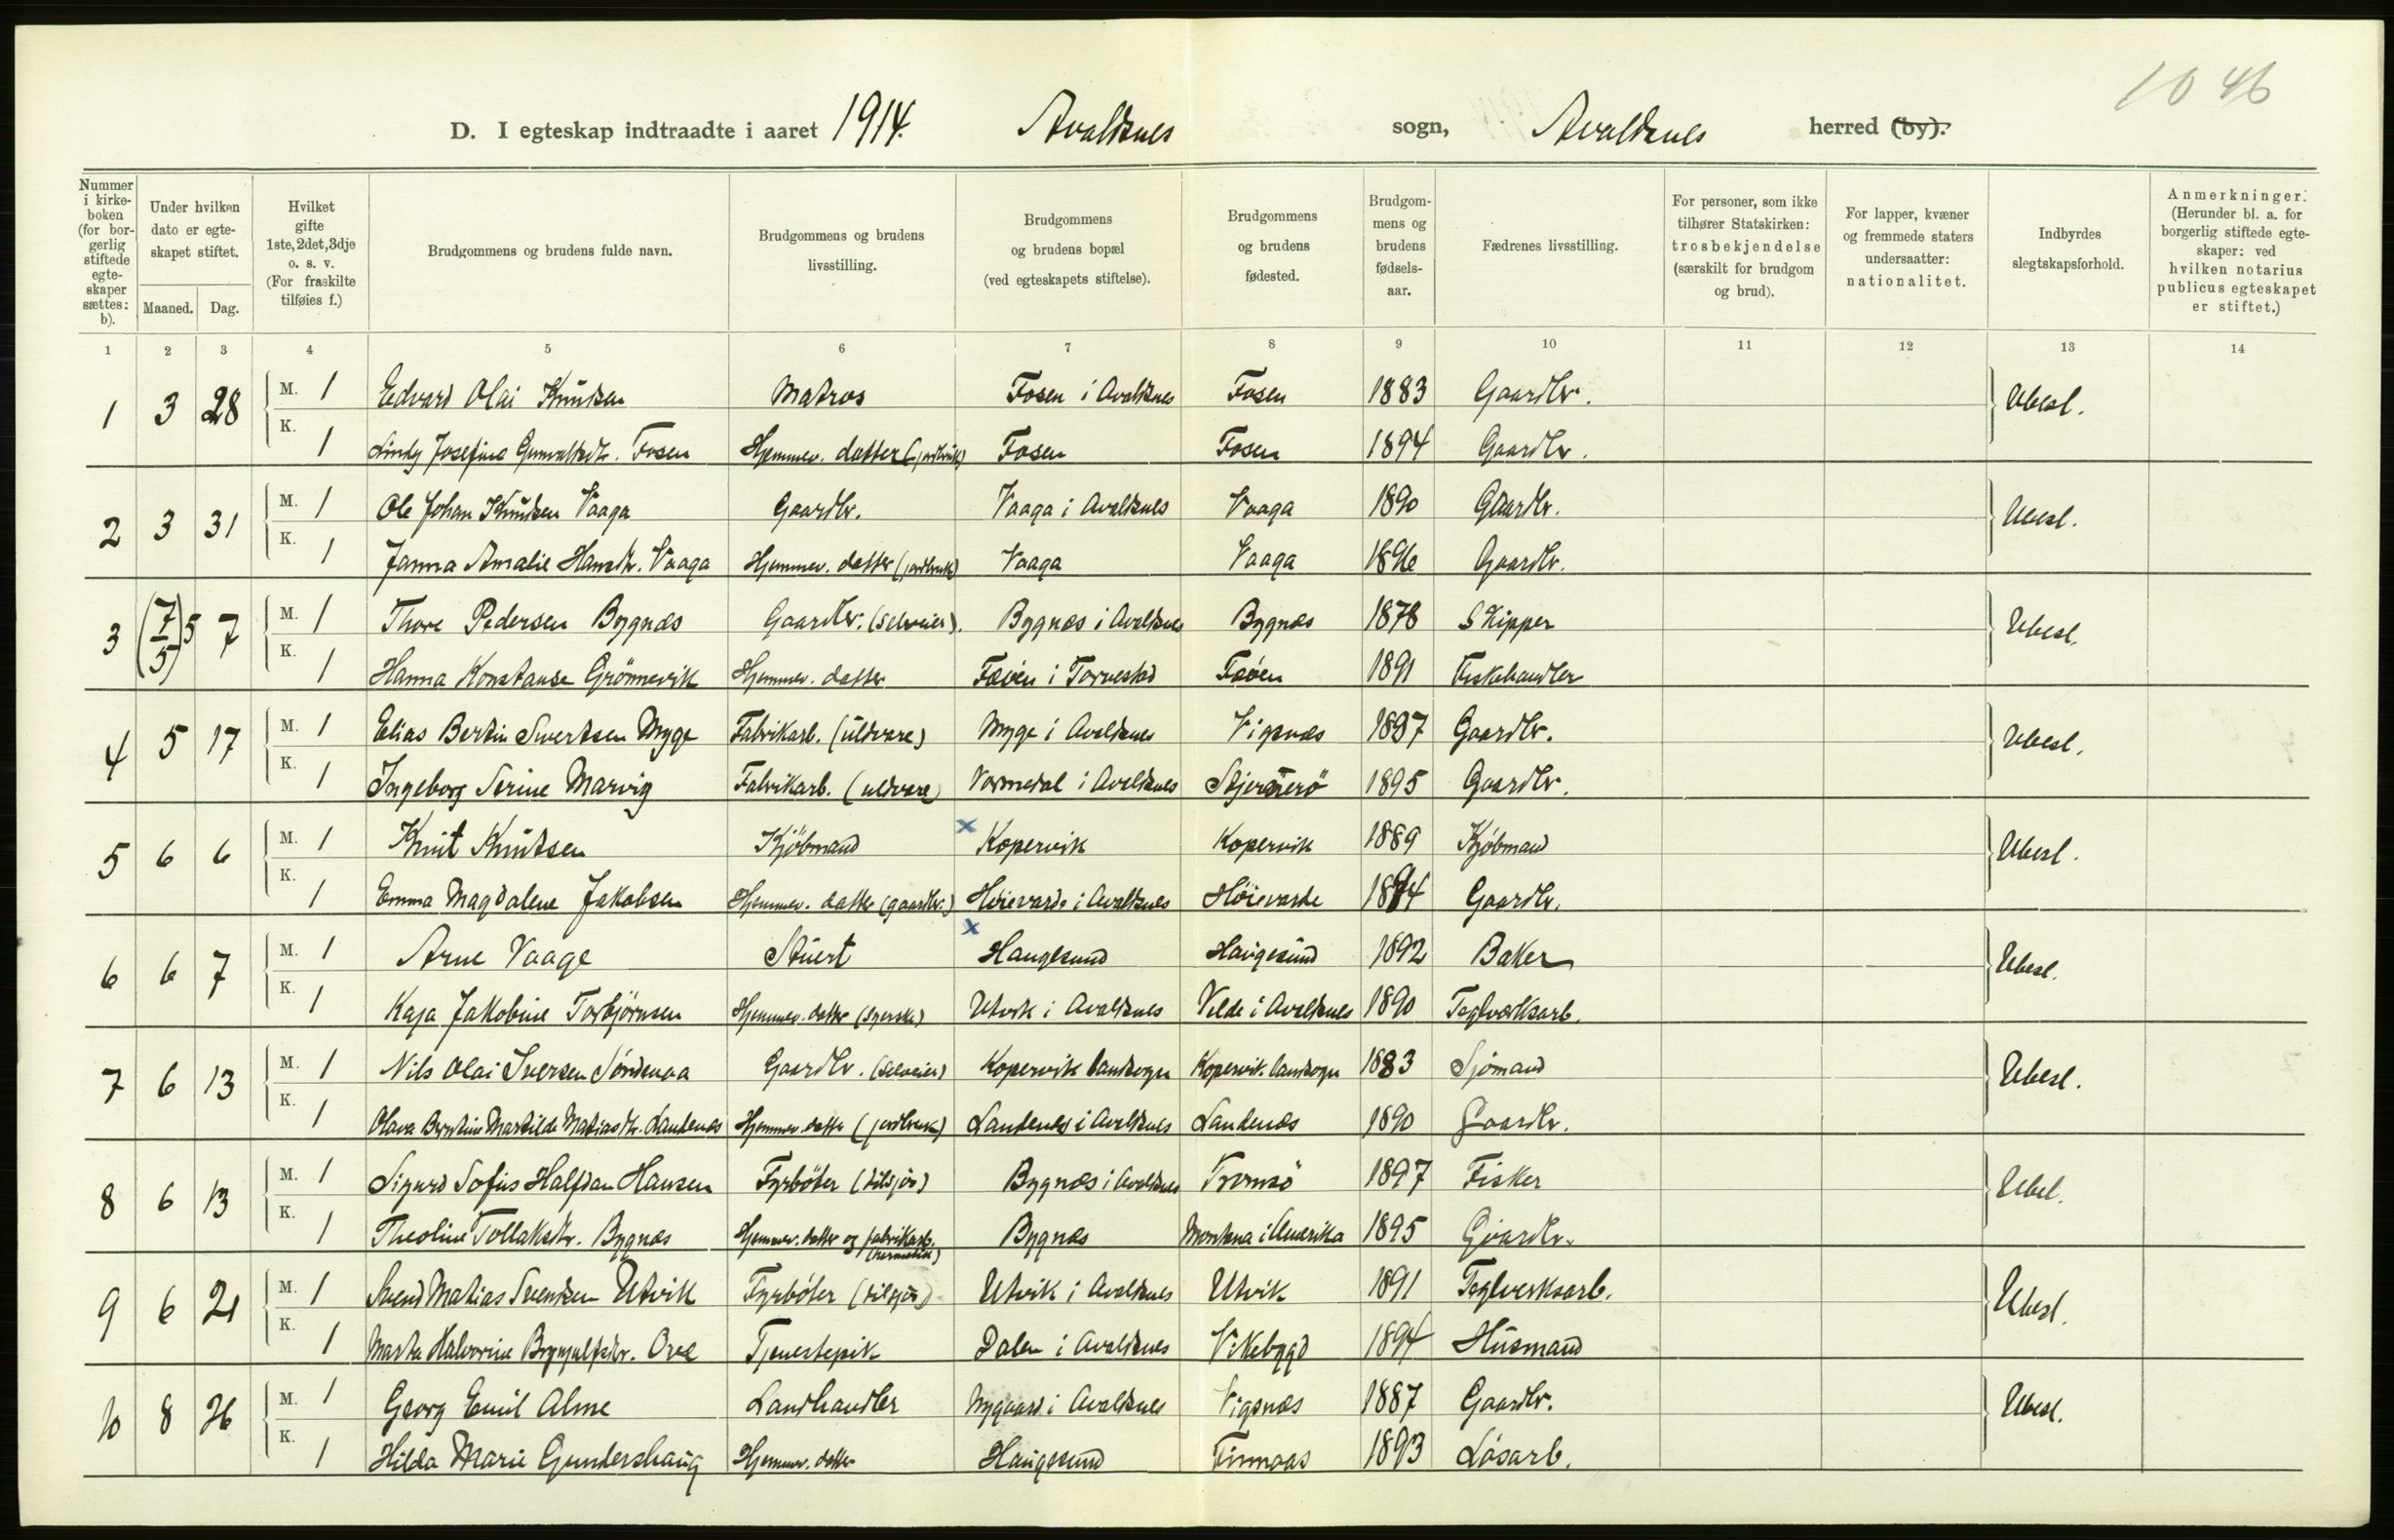 10 46
D. I egteskap indtraadte i aaret 1914. Avaldsnes sogn, Avaldsnes herred (by).
Nummer i kirke-boken (for bor-gerlig stiftede egte-skaper sættes: b).
Under hvilken dato er egte-skapet stiftet.
Maaned. Dag.
Hvilket gifte 1ste, 2det, 3dje o. s. v. (For fraskilte tilføies f.)
Brudgommens og brudens fulde navn.
Brudgommens og brudens livsstilling.
Brudgommens og brudens bopæl (ved egteskapets stiftelse).
Brudgommens og brudens fødested.
Brudgom-mens og brudens fødsels-aar.
Fædrenes livsstilling.
For personer, som ikke tilhører Statskirken: trosbekjendelse (særskilt for brudgom og brud).
For lapper, kvæner og fremmede staters undersaatter: nationalitet.
Indbyrdes slegtskapsforhold.
Anmerkninger. (Herunder bl. a. for borgerlig stiftede egte-skaper: ved hvilken notarius publicus egteskapet er stiftet.)
1 2 3 4 5 6 7 8 9 10 11 12 13 14
1 3 28 M. 1 Edvard Olai Knudsen Matros Fosen i Avaldsnes Fosen 1883 Gaardbr. Ubesl.
K. 1 Josefine Gunvaldsdtr. Fosen Hjemmev. datter (jordbruk) Fosen Fosen 1894 Gaardbr.
2 3 31 M. 1 Ole Johan Knudsen Vaaga Gaardbr. Vaaga i Avaldsnes Vaaga 1890 Gaardbr. Ubesl.
K. 1 Janna Amalie Hansdtr. Vaaga Hjemmev. datter (jordbruk) Vaaga Vaaga 1896 Gaardbr.
3 (7/5) 5 7 M. 1 Thore Pedersen Bygnæs Gaardbr. (selveier). Bygnæs i Avaldsnes Bygnæs 1878 Skipper Ubesl.
K. 1 Hanna Konstanse Grönnevik Hjemmev. datter Fæöen i Torvestad Fæöen 1891 Fiskehandler
4 5 17 M. 1 Elias Bertin Sivertsen Myge Fabrikarb. (uldvare) Myge i Avaldsnes Vigsnæs 1897 Gaardbr. Ubesl.
K. 1 Ingeborg Serine Marvig Fabrikarb. (uldvare) Vormedal i Avaldsnes Stjernerö 1895 Gaardbr.
5 6 6 M. 1 Knut Knutsen Kjöbmand x Kopervik Kopervik 1889 Kjöbmand Ubesl.
K. 1 Emma Magdalene Jakobsen Hjemmev. datter (gaardbr.) Höievarde i Avaldsnes Höievarde 1894 Gaardbr.
6 6 7 M. 1 Arne Vaage Stuert x Haugesund Haugesund 1892 Baker Ubesl.
K. 1 Kaja Jakobine Torbjörnsen Hjemmev. datter (syerske) Utvik i Avaldsnes Velde i Avaldsnes 1890 Teglverksarb.
7 6 13 M. 1 Nils Olai Iversen Söndenaa Gaardbr. (selveier) Kopervik landsogn Kopervik landsogn 1883 Sjömand Ubesl.
K. 1 Olava Berntine Martilde Matiasdtr. Landenæs Hjemmev. datter (jordbruk) Landenes i Avaldsnes Landenæs 1890 Gaardbr.
8 6 13 M. 1 Sigurd Sofus Halfdan Hansen Fyrböter (tilsjös) Bygnæs i Avaldsnes Tromsö 1897 Fisker Ubel.
K. 1 Theoline Tollaksdtr. Bygnæs Hjemmev. datter og fabrikarb. (hermetik) Bygnæs Montana i Amerika 1895 Gaardbr.
9 6 21 M. 1 Svend Matias Svendsen Utvik Fyrböter (tilsjös) Utvik i Avaldsnes Utvik 1891 Teglverksarb. Ubesl.
K. 1 Marta Halvorine Brynjulfsdtr. Ove Tjenestepik Dalen i Avaldsnes Vikebygd 1894 Husmand
10 8 26 M. 1 Georg Emil Alme Landhandler Nygaard i Avaldsnes Vigsnæs 1887 Gaardbr. Ubesl.
K. 1 Hilda Marie Gundershaug Hjemmev. datter Haugesund Finnaas 1893 Lösarb.